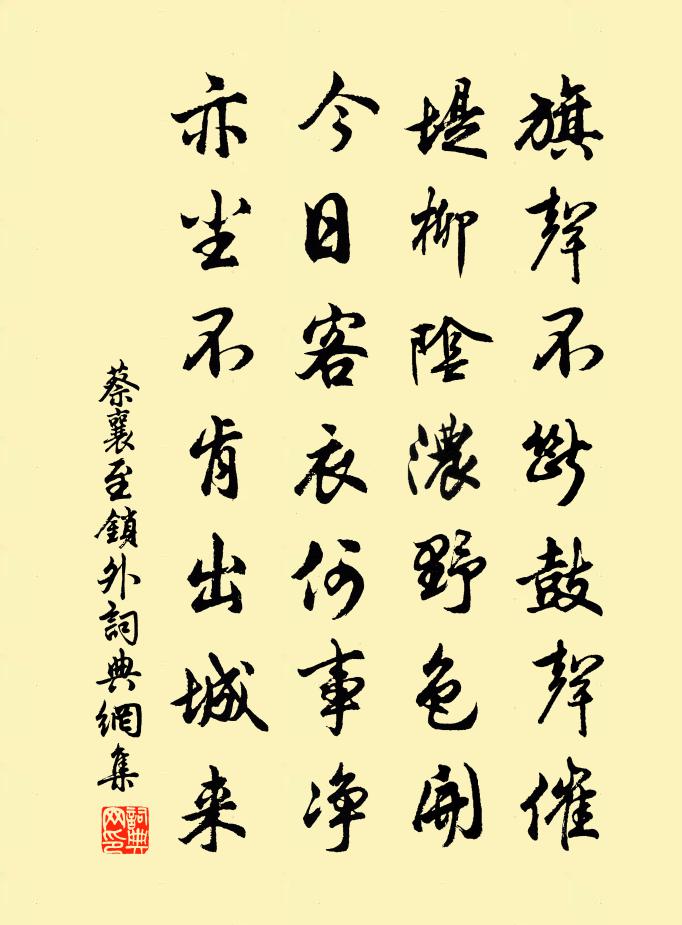 旗聲不斷鼓聲催
堤柳陰濃野色開
今日客衣何事净
亦尘不肯出城来
蔡襄至鎖外詞典網集
詞典网印